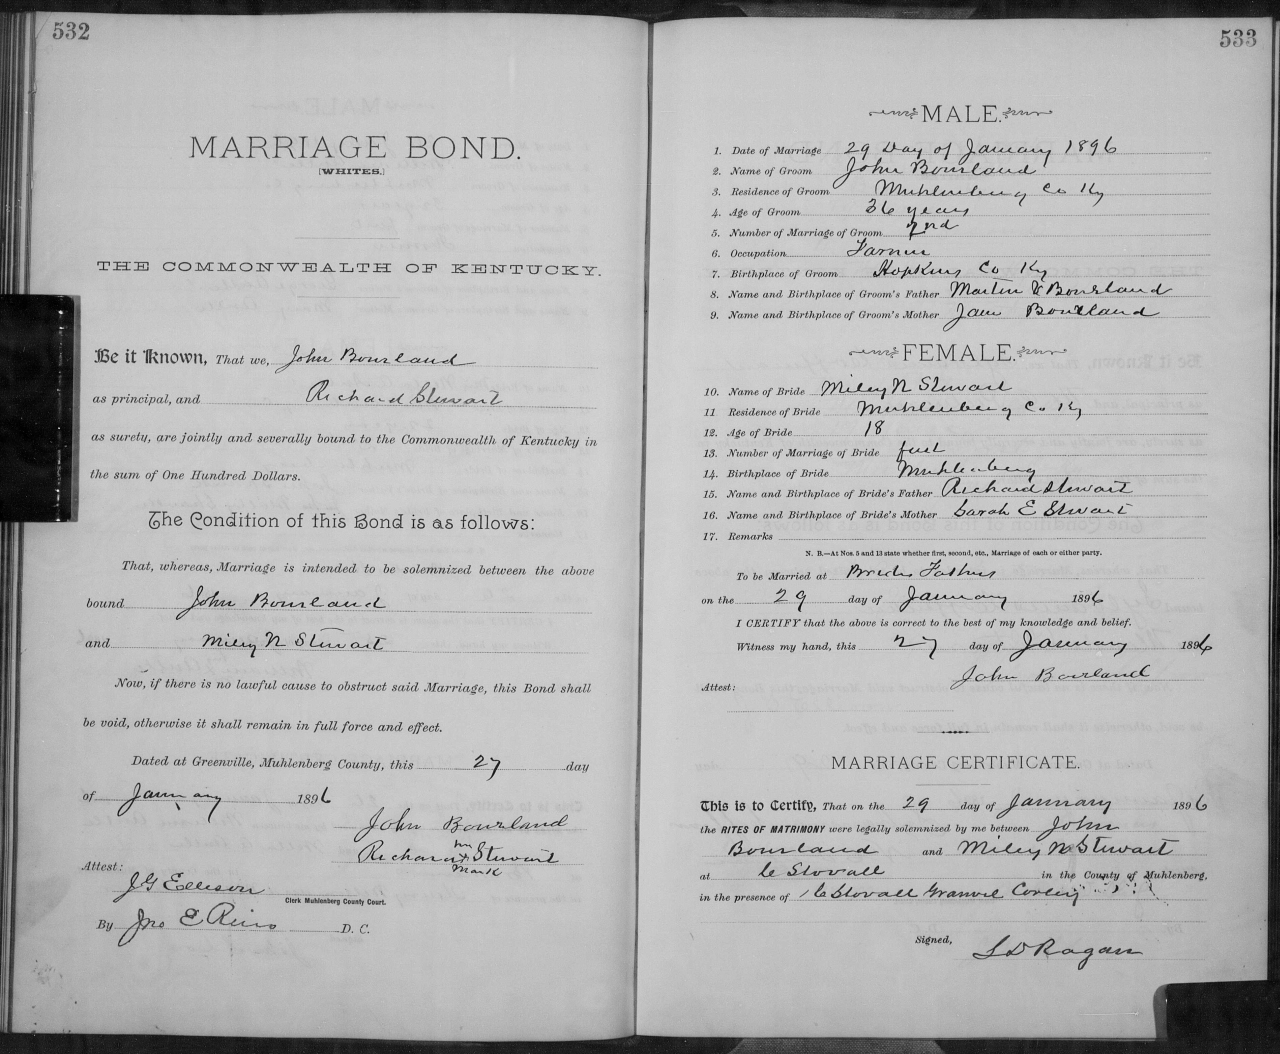 532
MARRIAGE BOND.
[WHITES.]
THE COMMONWEALTH OF KENTUCKY.
Be it Known, That we, John Bourland
as principal, and Richard Stewart
as surety, are jointly and severally bound to the Commonwealth of Kentucky in
the sum of One Hundred Dollars.
The Condition of this Bond is as follows:
That, whereas, Marriage is intended to be solemnized between the above
bound John Bourland
and Miley N Stewart
Now, if there is no lawful cause to obstruct said Marriage, this Bond shall
be void, otherwise it shall remain in full force and effect.
Dated at Greenville, Muhlenberg County, this 27 day
of January 1896
John Bourland
Richard his x mark Stewart
Attest:
J G Ellison
Clerk Muhlenberg County Court.
By Jno E Reno D. C.
533
MALE.
1. Date of Marriage 29 Day of January 1896
2. Name of Groom John Bourland
3. Residence of Groom Muhlenberg Co Ky
4. Age of Groom 36 years
5. Number of Marriage of Groom 2nd
6. Occupation Farmer
7. Birthplace of Groom Hopkins Co Ky
8. Name and Birthplace of Groom's Father Martin V Bourland
9. Name and Birthplace of Groom's Mother Jane Bourland
FEMALE.
10. Name of Bride Miley N Stewart
11 Residence of Bride Muhlenberg Co Ky
12. Age of Bride 18
13. Number of Marriage of Bride first
14. Birthplace of Bride Muhlenberg
15. Name and Birthplace of Bride's Father Richard Stewart
16. Name and Birthplace of Bride's Mother Sarah E Stewart
17. Remarks
N. B.—At Nos. 5 and 13 state whether first, second, etc., Marriage of each or either party.
To be Married at Brides Fathers
on the 29 day of January 1896
I CERTIFY that the above is correct to the best of my knowledge and belief.
Witness my hand, this 27 day of January 1896
John Bourland
Attest:
MARRIAGE CERTIFICATE.
This is to Certify, That on the 29 day of January 1896
the RITES OF MATRIMONY were legally solemnized by me between John
Bourland and Miley N Stewart
at C Stovall in the County of Muhlenberg,
in the presence of C Stovall Granvil Corley
Signed,
L D Ragan